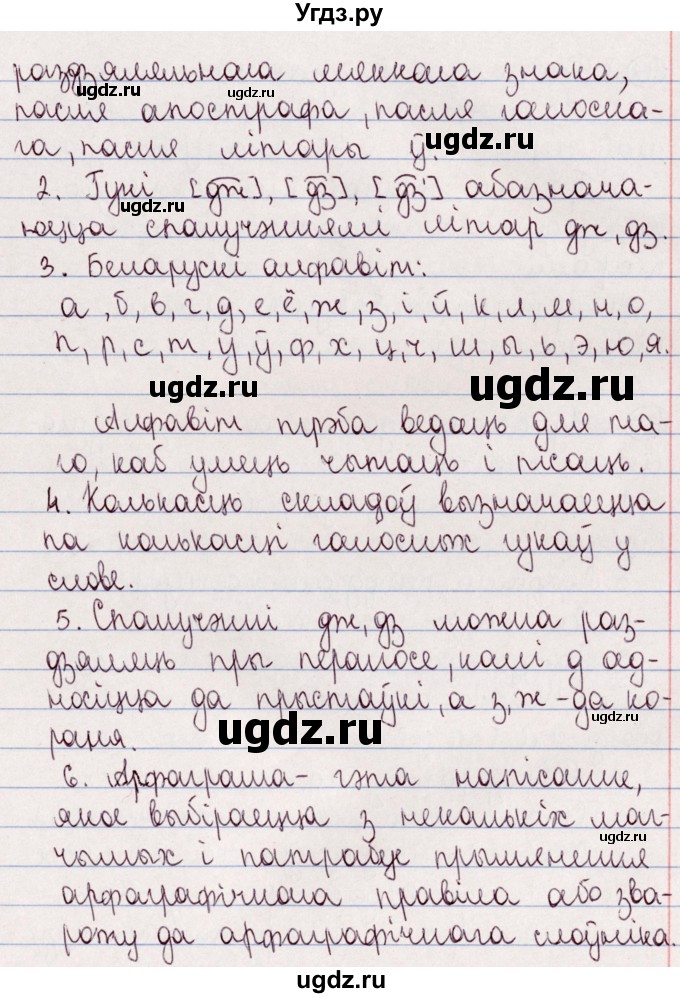 Угдз.ру
раздзяляльнага мяккага знака,
пасля апострафа, пасля галосна-
га, пасля літары ў.
2. Гукі [дж], [дз], [дз'] абазнача-
юцца спалучэннямі літар дж, дз.
3. Беларускі алфавіт:
а, б, в, г, д, е, ё, ж, з, і, й, к, л, м, н, о,
п, р, с, т, у, ў, ф, х, ц, ч, ш, ы, ь, э, ю, я.
Алфавіт трэба ведаць для та-
го, каб умець чытаць і пісаць.
4. Колькасць складоў вызначаецца
па колькасці галосных гукаў у
слове.
5. Спалучэнні дж, дз можна раз-
дзяляць пры пераносе, калі д ад-
носіцца да прыстаўкі, а з, ж - да ко-
раня.
6. Арфаграма - гэта напісанне,
якое выбіраецца з некалькіх маг-
чымых і патрабуе прымянення
арфаграфічнага правіла або зва-
роту да арфаграфічнага слоўніка.
ugdz.ru
ugdz.ru
ugdz.ru
ugdz.ru
ugdz.ru
ugdz.ru
ugdz.ru
ugdz.ru
ugdz.ru
ugdz.ru
ugdz.ru